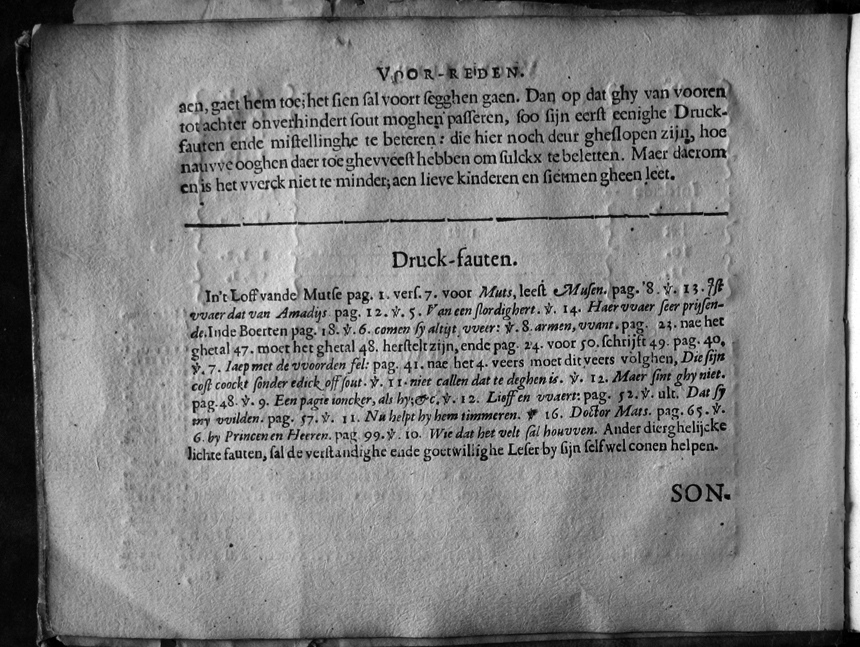 VOOR-REDEN.
aen, gaet hem toe; het sien sal voort segghen gaen. Dan op dat ghy van vooren
tot achter onverhindert sout moghen passeren, soo sijn eerst eenighe Druck-
fauten ende mistellinghe te beteren: die hier noch deur gheslopen zijn, hoe
nauvve ooghen daer toe ghevveest hebben om sulckx te beletten. Maer daerom
en is het vverck niet te minder; aen lieve kinderen en sietmen gheen leet.
Druck-fauten.
In't Loff vande Mutse pag. 1. vers. 7. voor Muts, leest Musen. pag. 8. ℣. 13. Ist
vvaer dat van Amadijs pag. 12. ℣. 5. Van een slordighert. ℣. 14. Haer vvaer seer prijsen-
de. Inde Boerten pag. 18. ℣. 6. comen sy altijt vveer: ℣. 8. armen, vvant. pag. 23. nae het
ghetal 47. moet het ghetal 48. herstelt zijn, ende pag. 24. voor 50. schrijft 49. pag. 40,
℣. 7. laep met de vvoorden fel: pag. 41. nae het 4. veers moet dit veers volghen, Die sijn
cost coockt sonder edick off sout. ℣. 11. niet callen dat te deghen is. ℣. 12. Maer sint ghy niet.
pag. 48. ℣. 9. Een pagie ioncker, als hy; &c. ℣. 12. Lieff en vvaert: pag. 52. ℣. ult. Dat sy
my vvilden. pag. 57. ℣. 11. Nu helpt hy hem timmeren. ℣ 16. Doctor Mats. pag. 65. ℣.
6. by Princen en Heeren. pag 99. ℣. 10. Wie dat het velt sal houvven. Ander dierghelijcke
lichte fauten, sal de verstandighe ende goetwillighe Leser by sijn self wel conen helpen.
SON.